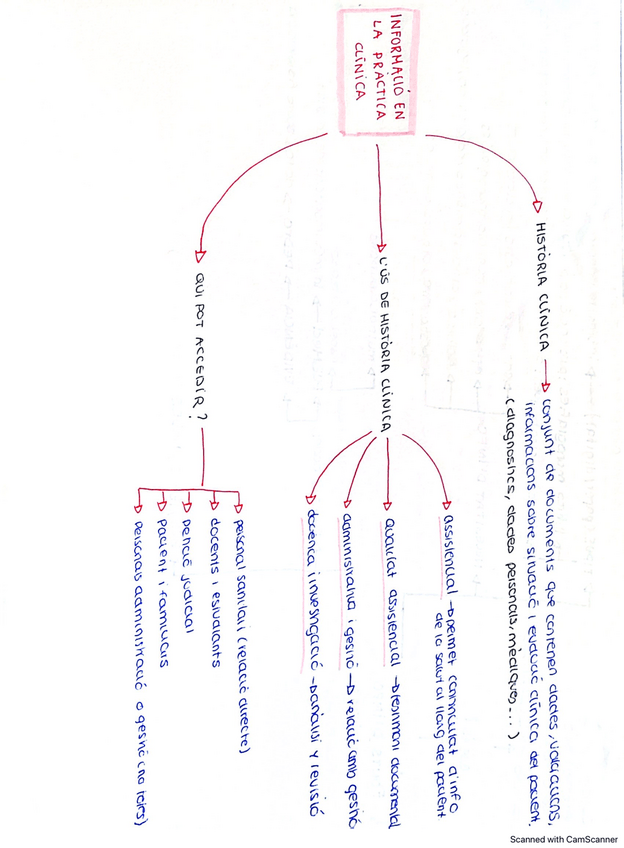 INFORMACIÓ EN
LA PRÀCTICA
CLÍNICA
HISTÒRIA CLÍNICA → conjunt de documents que contenen dades, valoracions,
informacions sobre situació i evolució clínica del pacient.
(diagnostics, dades personals, mèdiques...)
L'ÚS DE HISTÒRIA CLÍNICA
assistencial → permet continuitat d'info
de la salut al llarg del pacient
qualitat assistencial → testimoni documental
administrativa i gestió → relació amb gestió
docencia i investigació → anàlisi y revisió
QUI POT ACCEDIR?
personal sanitari (relació directe)
docents i estudiants
petició judicial
pacient i familiars
personals administració o gestió (no totes)
Scanned with CamScanner